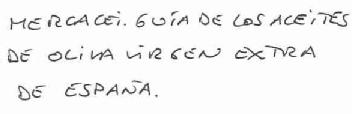 MERCACEI. GUÍA DE LOS ACEITES
DE OLIVA VIRGEN EXTRA
DE ESPAÑA.